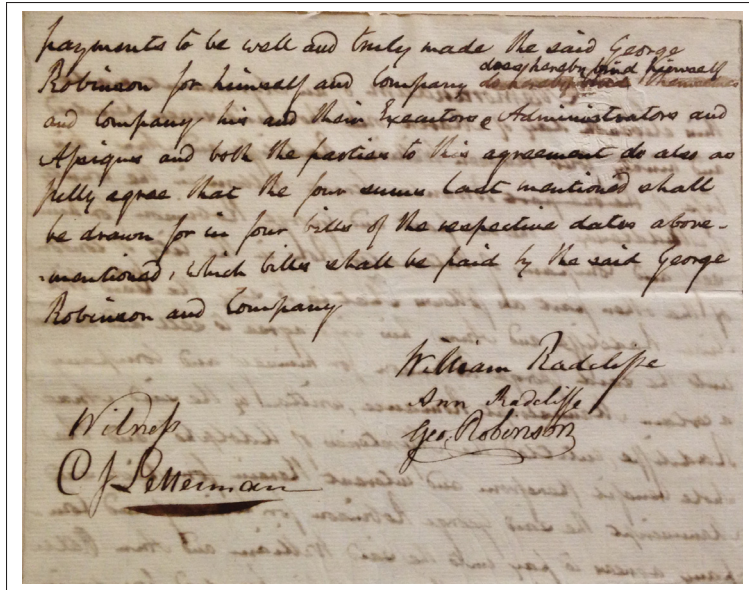 payments to be well and truly made the said George
does hereby bind himself
Robinson for himself and Company do hereby bind themselves
and Company his and their Executors Administrators and
Assigns and both the parties to this agreement do also as
fully agree that the four sums last mentioned shall
be drawn for in four bills of the respective dates above-
-mentioned, which bills shall be paid by the said George
Robinson and Company
William Radcliffe
Ann Radcliffe
Geo. Robinson
Witness
C J Letterman